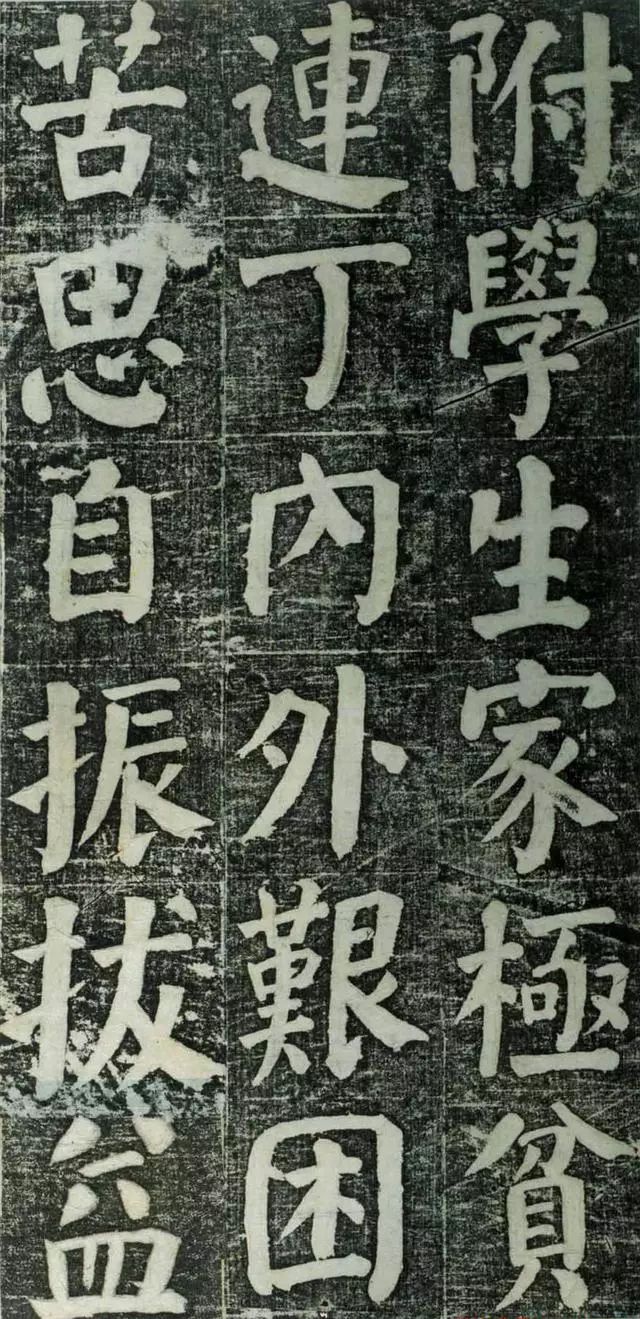 附學生家極貧
連丁內外艱困
苦思自振拔益